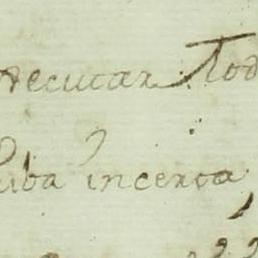 executar Tod
riba incerta